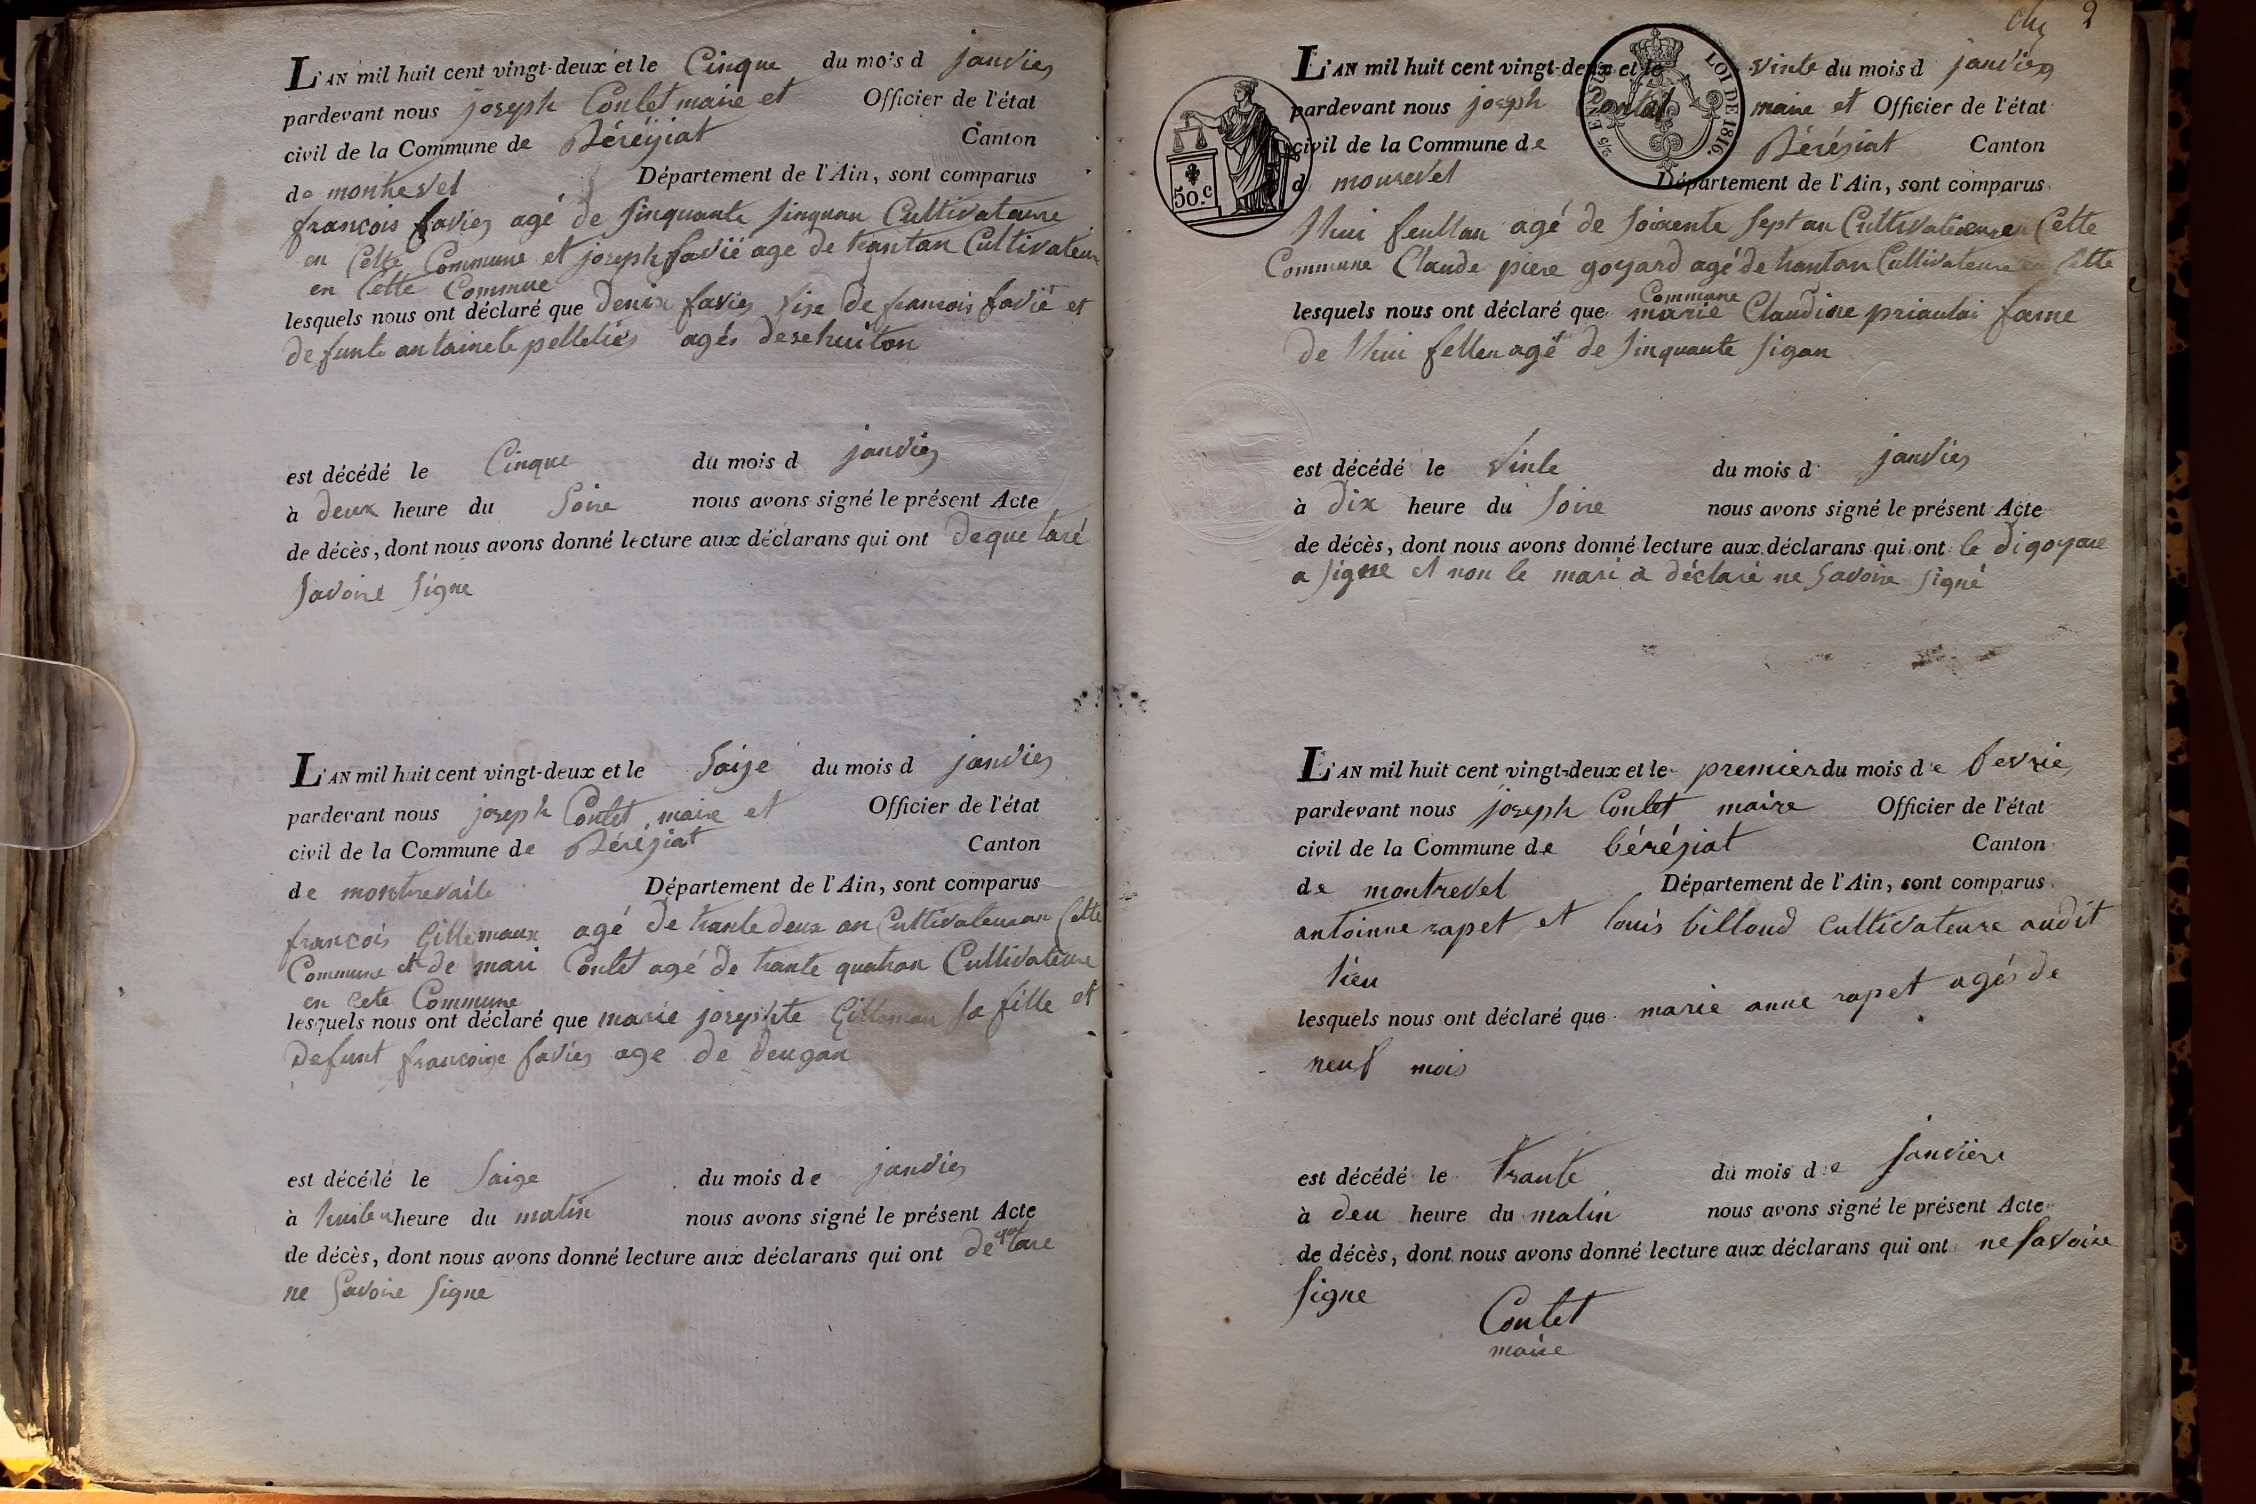 L'AN mil huit cent vingt-deux et le Cinque du mois d janvier
pardevant nous joseph Contet maire et Officier de l'état
civil de la Commune de Béréÿiat Canton
de montrevel Département de l'Ain, sont comparus
francois favier agé de sinquante sinquan Cultivateure
en Cette Commune et joseph favié age de trantan Cultivateure
en Cette Commune
lesquels nous ont déclaré que denix favier fise de francois favié et
defunte antainete pelletier agés desehuitan
est décédé le Cinque du mois d janvier
à deux heure du Soire nous avons signé le présent Acte
de décès, dont nous avons donné lecture aux déclarans qui ont
Savoire Signe
L'AN mil huit cent vingt-deux et le Saize du mois d janvier
pardevant nous joseph Contet maire et Officier de l'état
civil de la Commune de Béréziat Canton
de montrevaile Département de l'Ain, sont comparus
francois Gillemaux agé de trante deux an Cultivateur an Cette
Commune et de mari Contet agé de trante quatran Cultivateure
en cete Commune
lesquels nous ont déclaré que marie josephte Gillemau sa fille et
Defunt francoise favier age de deuzan
est décédé le Saize du mois de janvier
à huite heure du matin nous avons signé le présent Acte
de décès, dont nous avons donné lecture aux déclarans qui ont
ne Savoire Signe
2
L'AN mil huit cent vingt-deux et le vinte du mois d janvier
pardevant nous joseph Contet maire et Officier de l'état
civil de la Commune de Béréziat Canton
d mourevel Département de l'Ain, sont comparus
feullan agé de Soixente Sept an Cultivateure en Cette
Commune Claude piere goyard agé de trantan Cultivateure en Cette
Commune
lesquels nous ont déclaré que marie Claudine priaulai fame
de fellen agé de Sinquante Sigan
est décédé le vinte du mois d janvier
à dix heure du Soire nous avons signé le présent Acte
de décès, dont nous avons donné lecture aux déclarans qui ont le di goyare
a Signe et non le mari a déclaré ne Savoire Signé
50.c
LOI DE 1816.
L'AN mil huit cent vingt-deux et le premier du mois de fevrie
pardevant nous joseph Contet maire Officier de l'état
civil de la Commune de béréziat Canton
de montrevel Département de l'Ain, sont comparus
antoinne rapet et louis billoud cultivateure audit
lieu
lesquels nous ont déclaré que marie anne rapet agés de
neuf mois
est décédé le trante du mois de janvière
à deu heure du matin nous avons signé le présent Acte
de décès, dont nous avons donné lecture aux déclarans qui ont ne Savoire
Signe
Contet
maire